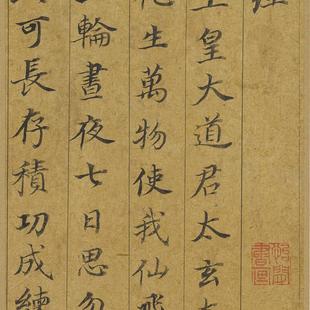 經
上皇大道君太玄
化生萬物使我仙飛
輪晝夜七日思勿
可長存積功成練